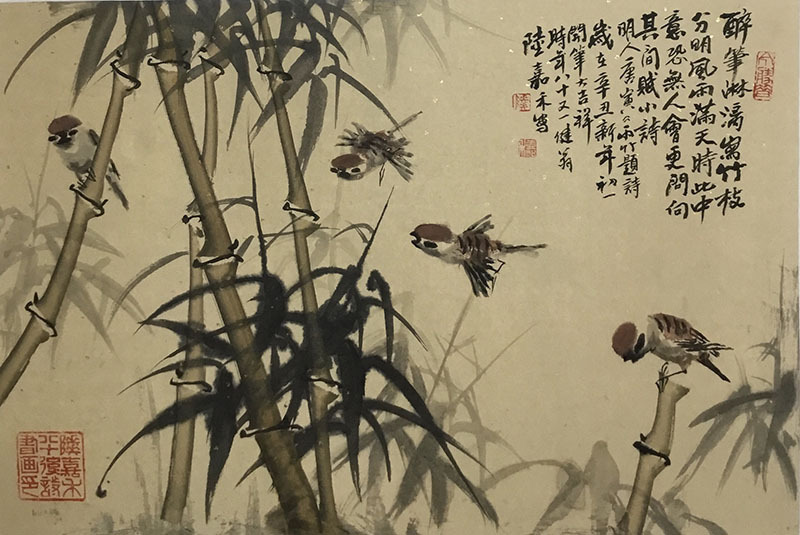 醉筆淋漓寫竹枝
分明風雨滿天時此中
意恐無人會更問向
其間賦小詩
明人唐寅公竹題詩
歲在辛丑新年初一
開筆大吉祥
時年八十又一健翁
陸嘉禾寫
陸嘉禾
書画印